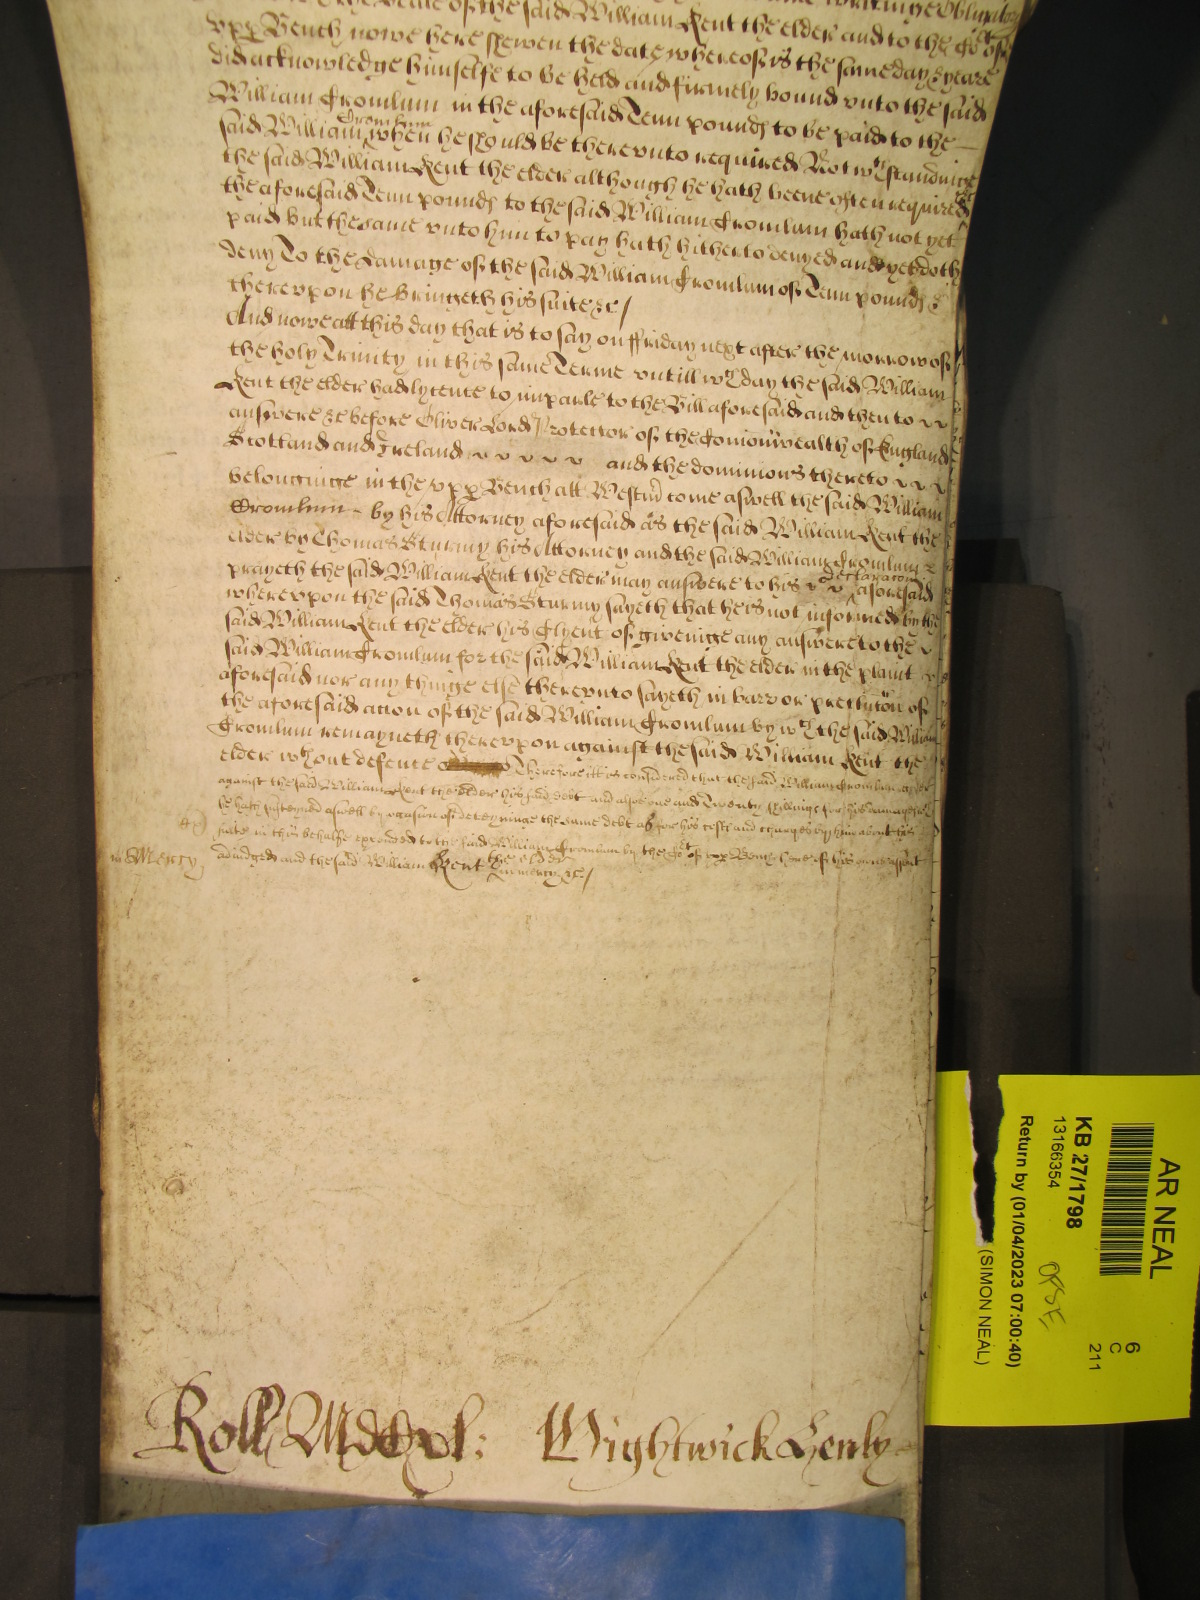 the Seale of the said William Kent the elder and to the Co:rt of
vpp Bench nowe here shewen the date whereof is the same day & yeare
did acknowledge himselfe to be held and firmely bound vnto the said
William Cromlum in the aforesaid Tenn pounds to be paid to the
said William Cromlum when he should be therevnto required Notwthstandinge
the said William Kent the elder although he hath beene often required
the aforesaid Tenn pounds to the said William Cromlum hath not yet
paid but the same vnto him to pay hath hitherto denyed and yet doth
deny To the damage of the said William Cromlum of Tenn pounds &
therevpon he bringeth his suite &c/
And nowe att this day that is to say on ffriday next after the morrow of
the holy Trinity in this same Terme vntill wch day the said William
Kent the elder had lycence to imparle to the Bill aforesaid and then to
answere &c before Oliver Lord Protector of the Comonwealth of England
Scotland and Ireland and the dominions thereto
belonginge in the vpp Bench att Westm come aswell the said William
Cromlum by his Attorney aforesaid as the said William Kent the
elder by Thomas Sturmy his Attorney and the said William Cromlum
prayeth the said William Kent the elder may answere to his declaracon aforesaid
wherevpon the said Thomas Sturmy sayeth that he is not informed by the
said William Kent the elder his Clyent of giveinge any answere to the
said William Cromlum for the said William Kent the elder in the plaint
aforesaid nor any thinge else therevnto sayeth in barr or of
the aforesaid accon of the said William Cromlum by wch the said William
Cromlum remayneth therevpon against the said William Kent the
elder wthout defence Therefore itt is considered that the said William Cromlum
against the said William Kent the elder his said debt and alsoe one and Twenty shillings for his damages wch
he hath susteyned aswell by occasion of deteyninge the same debt as for his costs and charges by him about his
suite in this behalfe expended to the said William Cromlum by the Cort of vpp Bench here of his owne assent
in Mercy
adiudged and the said William Kent the elder in mercy &c/
Roll Mdcxl: Wightwick Henly
AR NEAL
KB 27/1798
13166354
Return by (01/04/2023 07:00:40)
(SIMON NEAL)
6
C
211